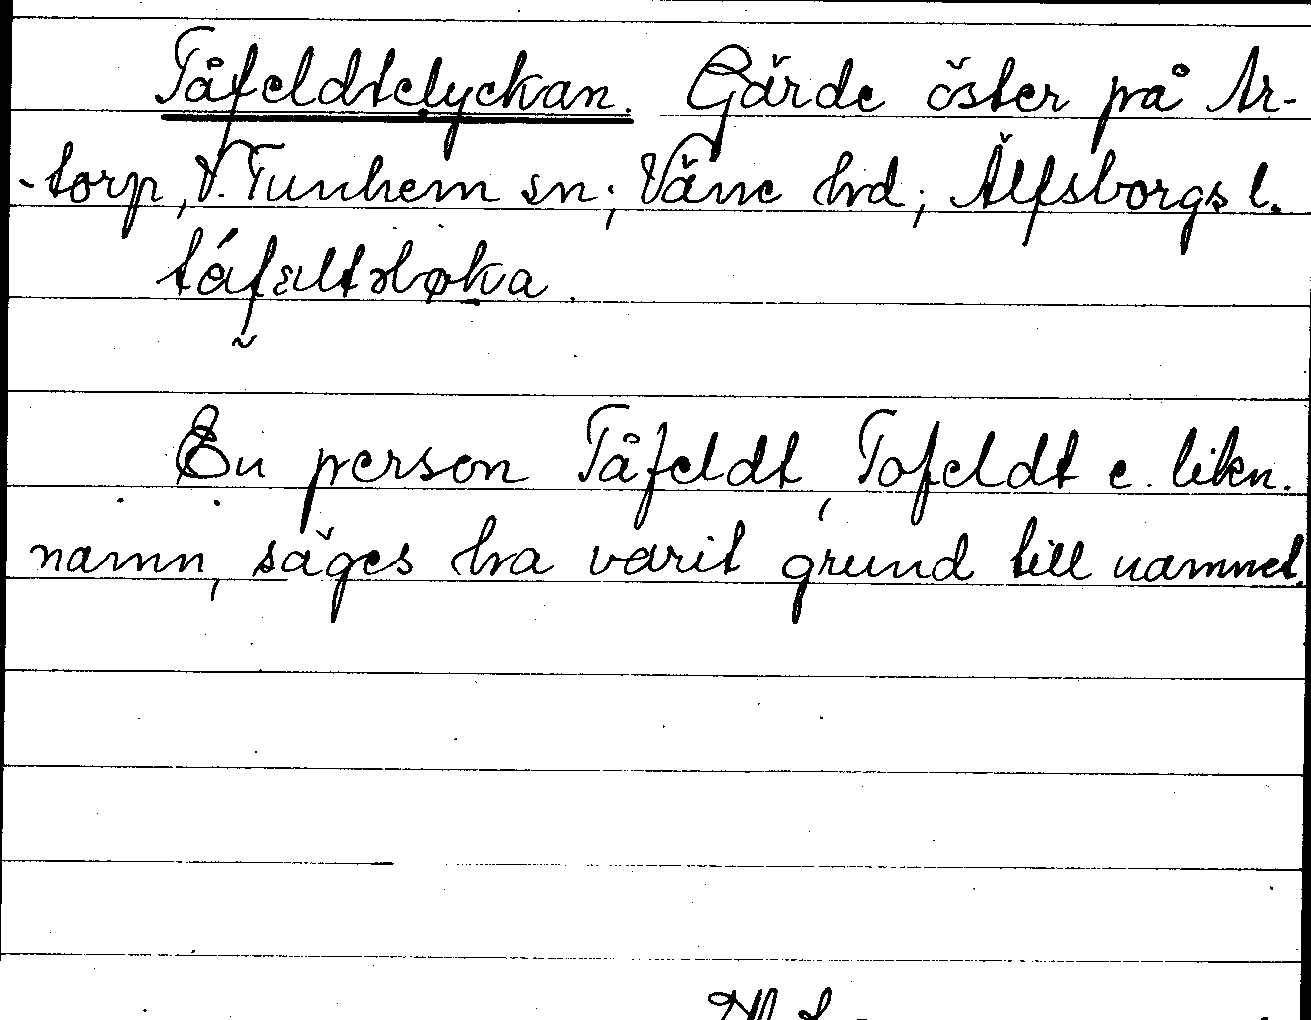 Tåfeldtelyckan. Gärde öster på Ar-
-torp, V. Tunhem sn; Väne hd; Älfsborgs l.
En person Tåfeldt, Tofeldt e. likn.
namn, säges ha varit grund till namnet.